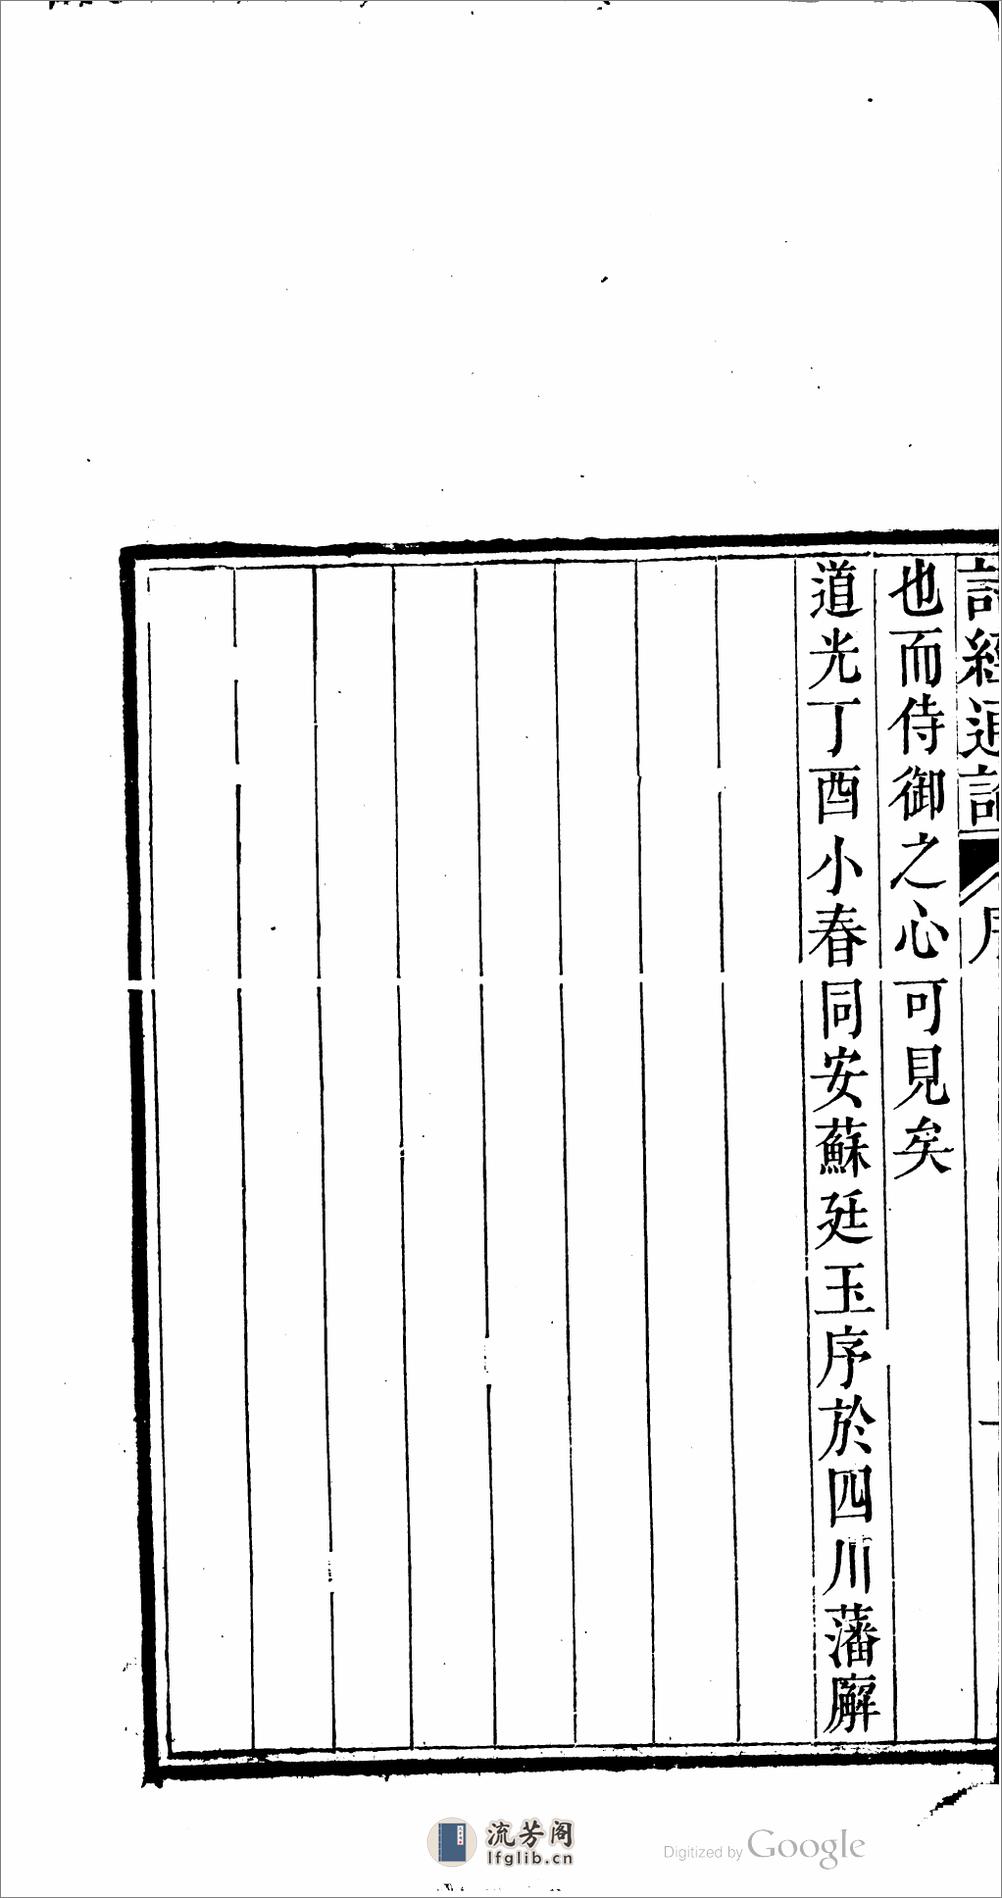 詩經通論 序
也而侍御之心可見矣
道光丁酉小春同安蘇廷玉序於四川藩廨
流芳阁
lfglib.cn
Digitized by Google